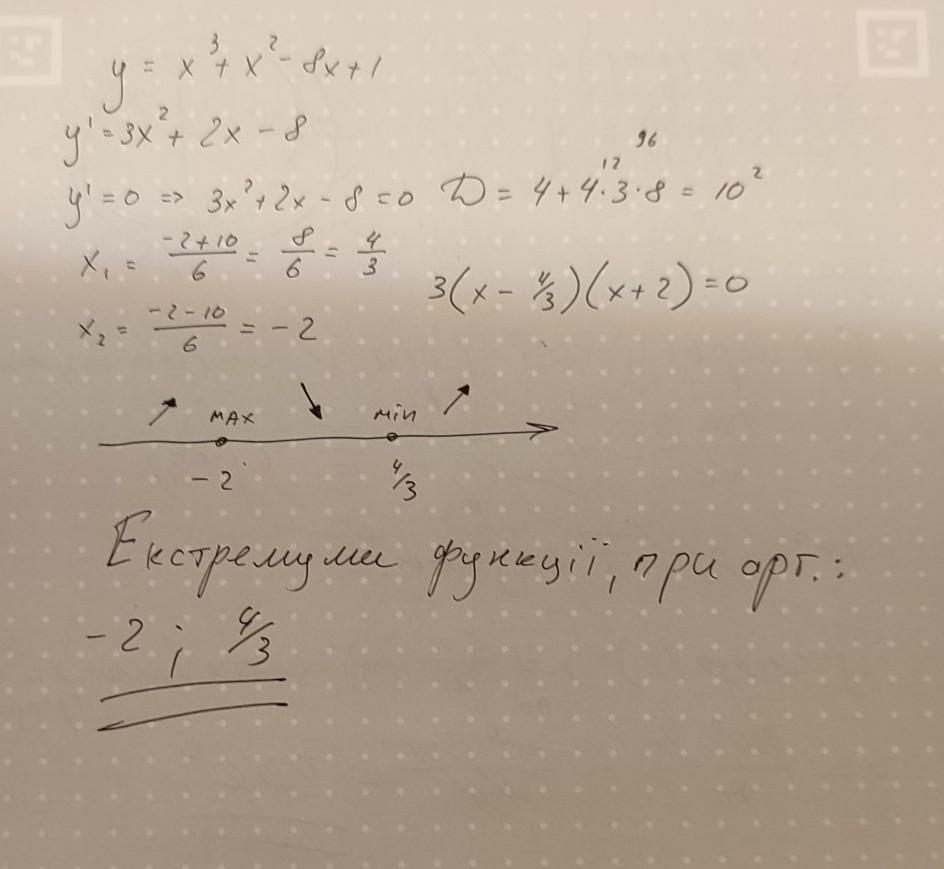 y = x³ + x² - 8x + 1
y' = 3x² + 2x - 8
96
12
y' = 0 => 3x² + 2x - 8 = 0 D = 4 + 4·3·8 = 10²
x₁ = (-2+10)/6 = 8/6 = 4/3
3(x - 4/3)(x + 2) = 0
x₂ = (-2-10)/6 = -2
↗ max ↘ min ↗
-2 4/3
Екстремуми функції, при арг.:
-2 ; 4/3